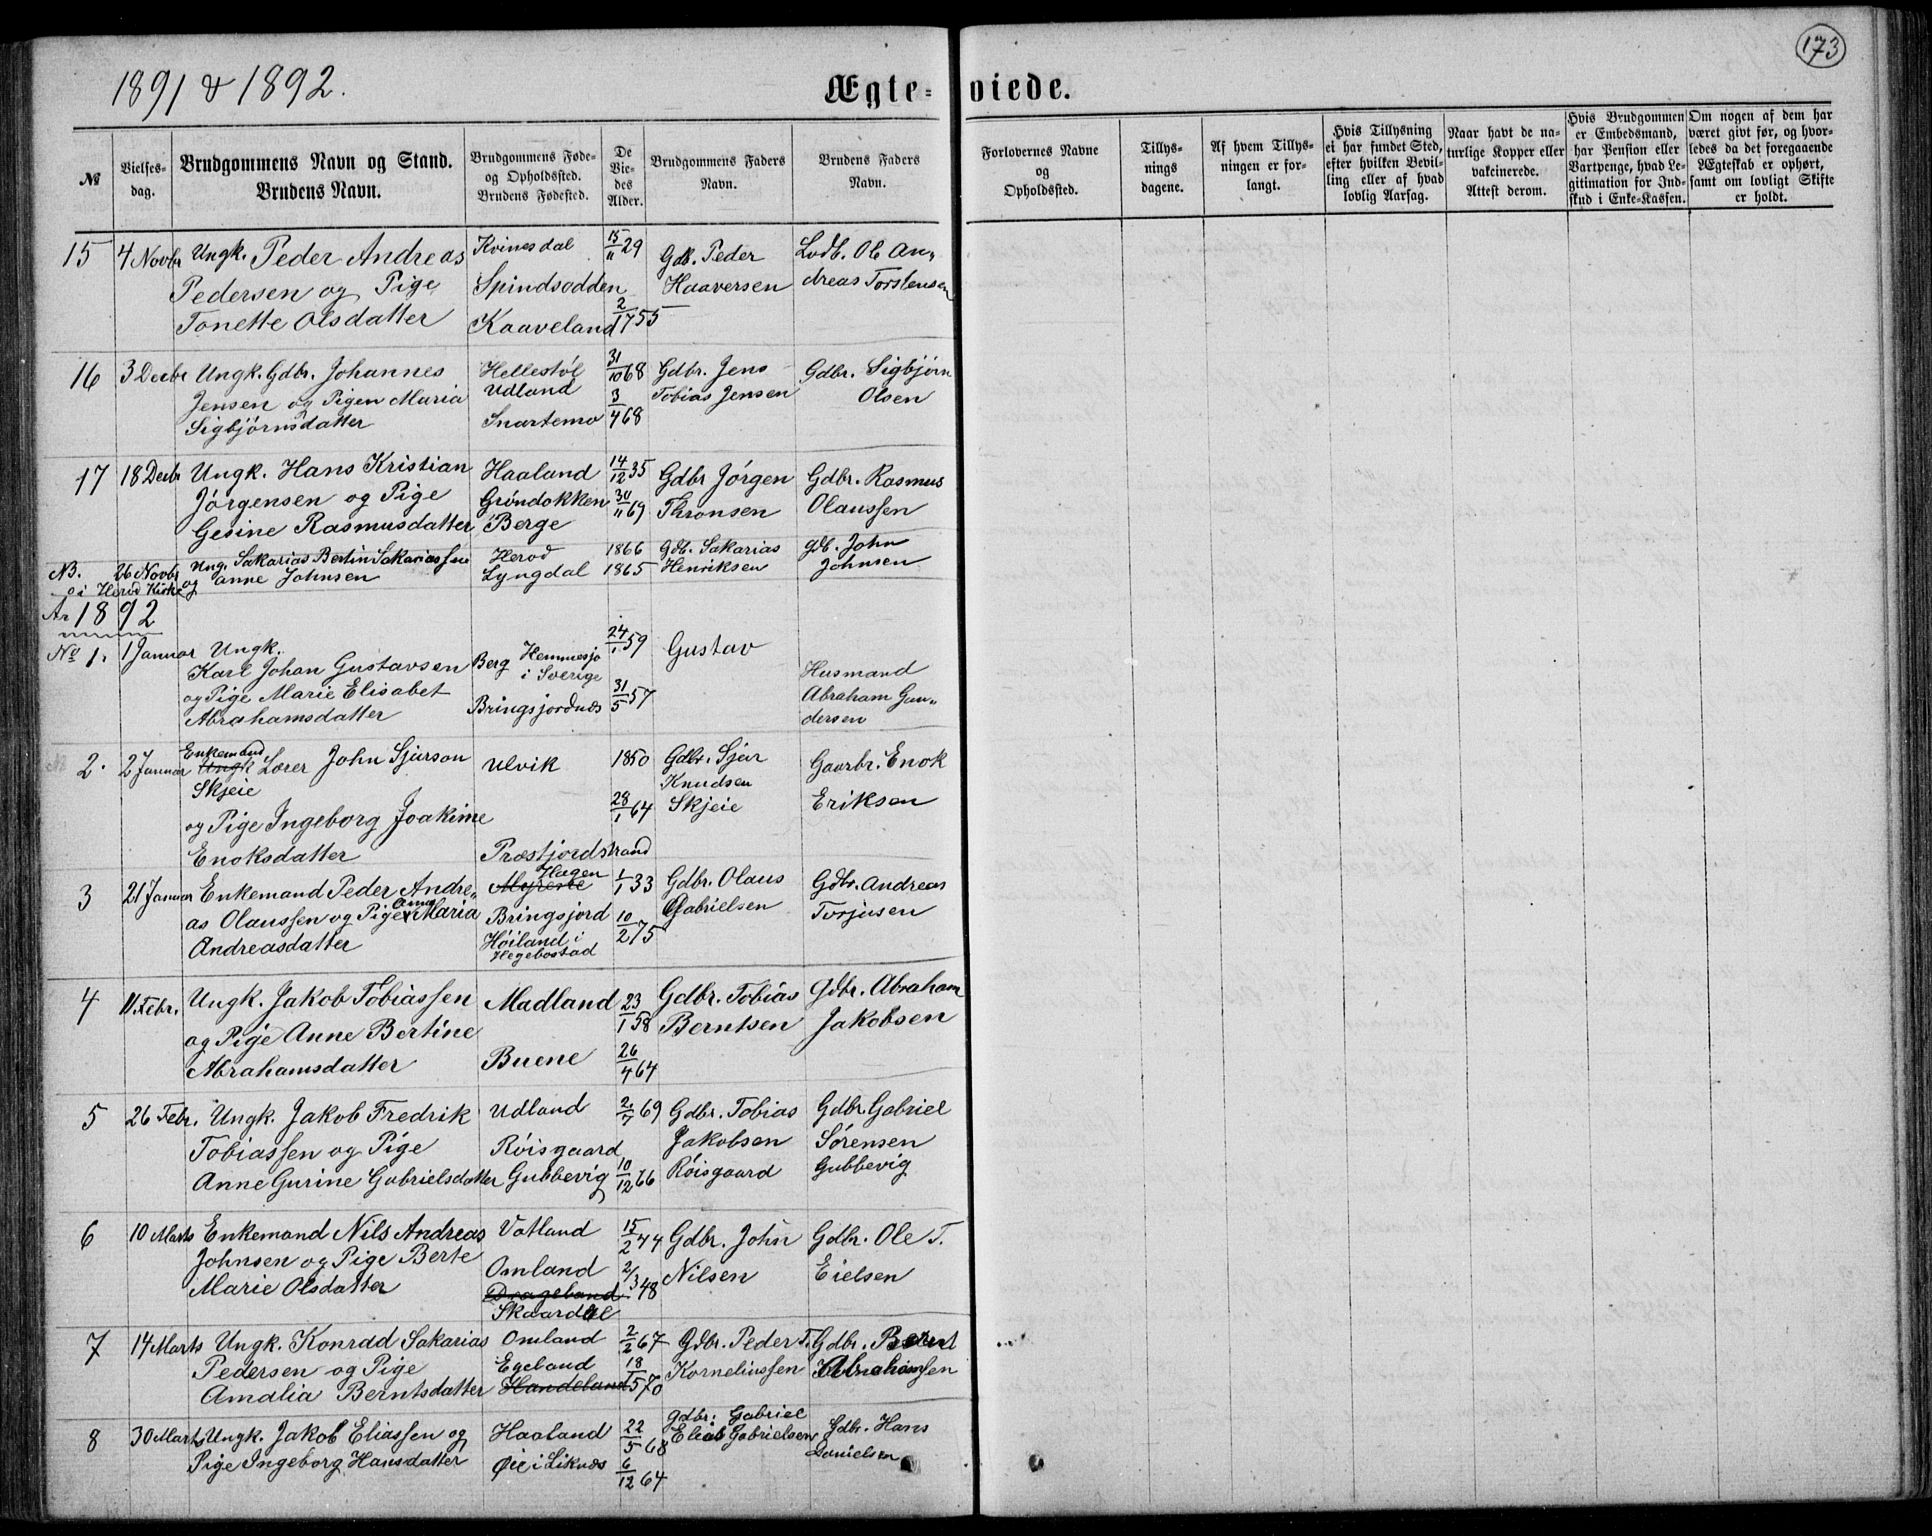 173
1891 & 1892.
Ægte-viede.
№
Vielses-
dag.
Brudgommens Navn og Stand.
Brudens Navn.
Brudgommens Føde-
og Opholdssted.
Brudens Fødested.
De
Vie-
des
Alder.
Brudgommens Faders
Navn.
Brudens Faders
Navn.
Forlovernes Navne
og
Opholdssted.
Tillys-
nings
dagene.
Af hvem Tillys-
ningen er for-
langt.
Hvis Tillysning
ei har fundet Sted,
efter hvilken Bevil-
ling eller af hvad
lovlig Aarsag.
Naar havt de na-
turlige Kopper eller
vakcinerede.
Attest derom.
Hvis Brudgommen
er Embedsmand,
har Pension eller
Vartpenge, hvad Le-
gitimation for Ind-
skud i Enke-Kassen.
Om nogen af dem har
været givt før, og hvor-
ledes da det foregaaende
Ægteskab er ophørt,
samt om lovligt Skifte
er holdt.
15 4 Novbr Ungk. Peder Andreas Kvinesdal 15/11 29 Gdb. Peder Lodb. Ole An-
Pedersen og Pige Spindsodden Haaversen dreas Torstensen
Tonette Olsdatter Kaaveland 2/17 55
16 3 Decbr Ungk. Gdbr. Johannes Hellestöl 31/10 68 Gdbr. Jens Gdbr. Sigbjörn
Jensen og Pigen Maria Udland 3/4 68 Tobias Jensen Olsen
Sigbjörnsdatter Snartemo
17 18 Decbr Ungk. Hans Kristian Haaland 14/12 35 Gdbr Jörgen Gdbr. Rasmus
Jörgensen og Pige Gröndokken 30/11 69 Thronsen Olaussen
Gesine Rasmusdatter Berge
NB. 26 Novbr Ung. Sakarias Bertin Sakariassen Herod 1866 Gdb. Sakarias gdb. John
i Herod Kirke og Anne Johnsen Lyngdal 1865 Henriksen Johnsen
Ar 1892
No 1. 1 Januar Ungk. 24/1 59 Gustav
Karl Johan Gustavsen Berg Hemmesjo
i Sverige Husmand
og Pige Marie Elisabet 31/5 57 Abraham Gun-
Abrahamsdatter Bringsjordnes dersen
2. 2 Januar Enkemand
Ungk Lærer John Sjurson Ulvik 1850 Gdbr. Sjur Gaarbr. Enok
Skjeie Knudsen
og Pige Ingeborg Joakime 28/1 64 Skjeie Eriksen
Enoksdatter Præstjordstrand
3 21 Januar Enkemand Peder Andre- Hagen 1/1 33 Gdbr. Olaus Gdbr. Andreas
as Olaussen og Pige Anna Maria Bringsjord 10/2 75 Gabrielsen Torjusen
Andreasdatter Höiland i
Hegebostad
4 11 Febr. Ungk. Jakob Tobiassen Madland 23/1 58 Gdbr. Tobias Gdbr. Abraham
og Pige Anne Bertine Berntsen Jakobsen
Abrahamsdatter Buene 26/4 64
5 26 Febr. Ungk. Jakob Fredrik Udland 2/7 69 Gdbr. Tobias Gdbr. Gabriel
Tobiassen og Pige Röisgaard Jakobsen Sörensen
Anne Gurine Gabrielsdatter Gubbevig 10/12 66 Röisgaard Gubbevig
6 10 Marts Enkemand Nils Andreas Vatland 15/2 44 Gdbr. John Gdbr. Ole T.
Johnsen og Pige Berte Omland 2/3 48 Nilsen Eielsen
Marie Olsdatter Drageland
Skaardal
7 14 Marts Ungk. Konrad Sakarias Omland 2/2 67 Gdbr. Peder T. Gdbr. Bernt
Pedersen og Pige Egeland 18/5 70 Korneliussen Abrahamsen
Amalia Berntsdatter Handeland
8 30 Marts Ungk. Jakob Eliassen og Haaland 22/5 68 gdbr. Gabriel Gdbr. Hans
Elias Gabrielsen Danielsen
Pige Ingeborg Hansdatter Øie i Liknes 6/12 64